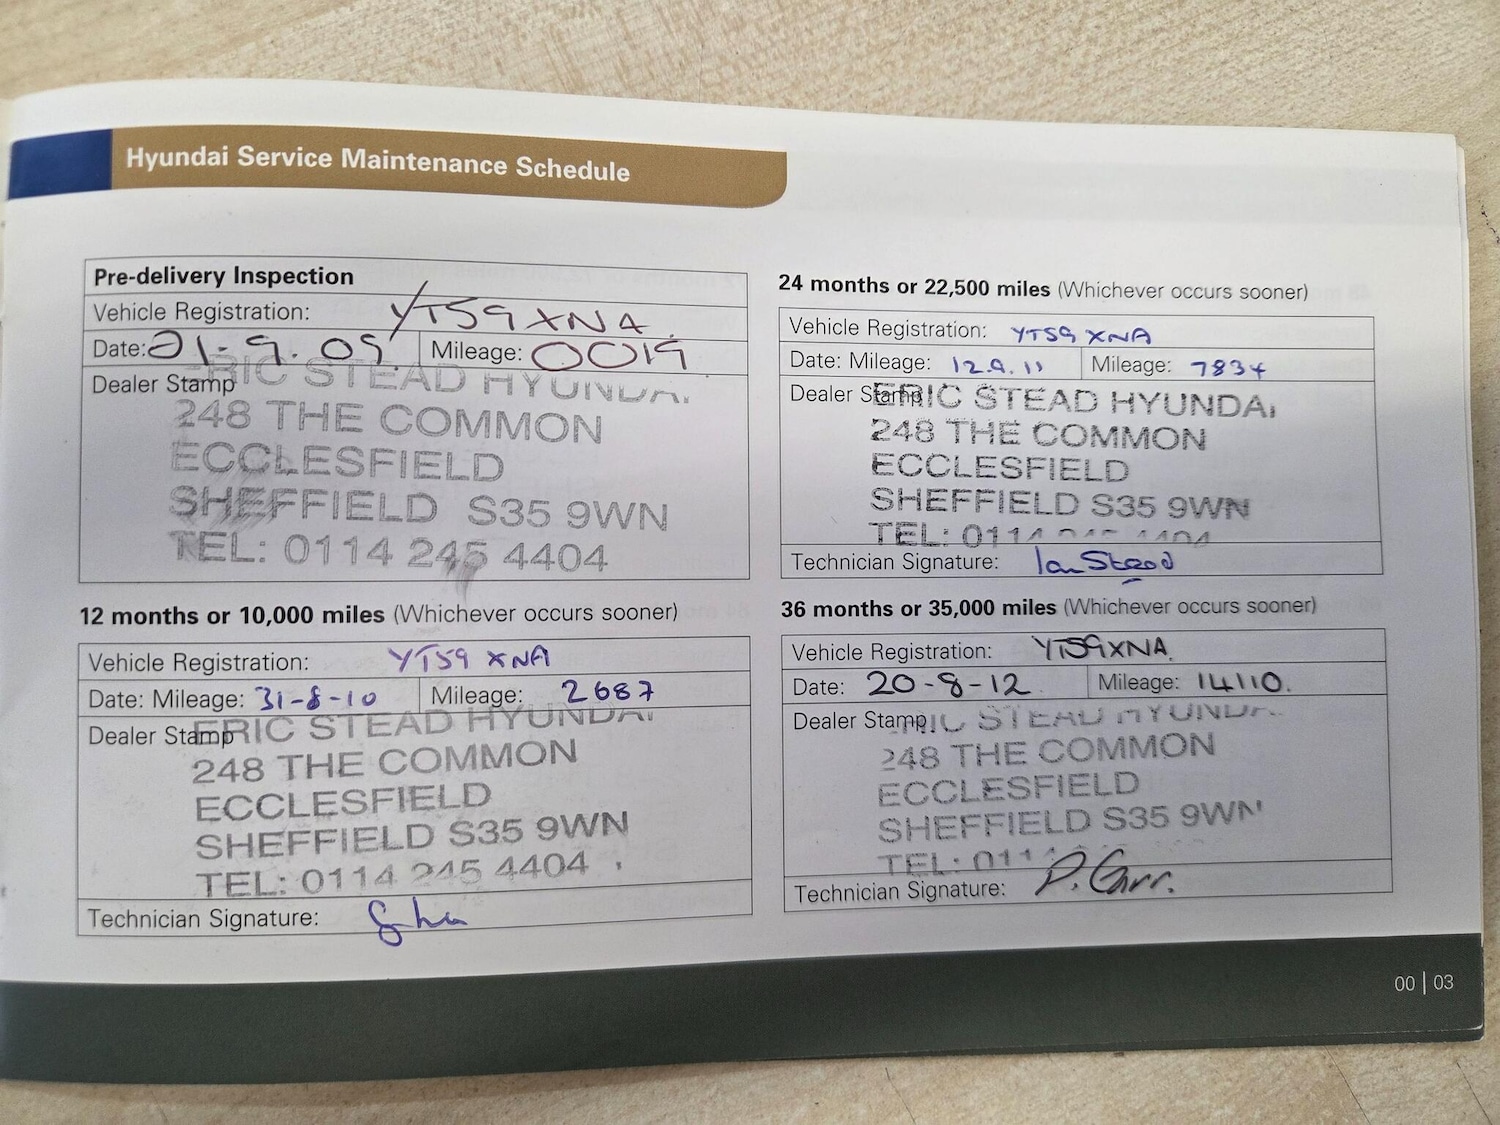 Hyundai Service Maintenance Schedule
Pre-delivery Inspection
Vehicle Registration: YT59 XNA
Date: 21-9.09 Mileage: 0019
Dealer Stamp
ERIC STEAD HYUNDAI
248 THE COMMON
ECCLESFIELD
SHEFFIELD S35 9WN
TEL: 0114 245 4404
12 months or 10,000 miles (Whichever occurs sooner)
Vehicle Registration: YT59 XNA
Date: Mileage: 31-8-10 Mileage: 2687
Dealer Stamp
ERIC STEAD HYUNDAI
248 THE COMMON
ECCLESFIELD
SHEFFIELD S35 9WN
TEL: 0114 245 4404
Technician Signature:
24 months or 22,500 miles (Whichever occurs sooner)
Vehicle Registration: YT59 XNA
Date: Mileage: 12.9.11 Mileage: 7834
Dealer Stamp
ERIC STEAD HYUNDAI
248 THE COMMON
ECCLESFIELD
SHEFFIELD S35 9WN
TEL: 0114 245 4404
Technician Signature: Ian Stead
36 months or 35,000 miles (Whichever occurs sooner)
Vehicle Registration: YT59XNA
Date: 20-8-12 Mileage: 14110.
Dealer Stamp
ERIC STEAD HYUNDAI
248 THE COMMON
ECCLESFIELD
SHEFFIELD S35 9WN
TEL: 011
Technician Signature: P. Carr.
00 | 03